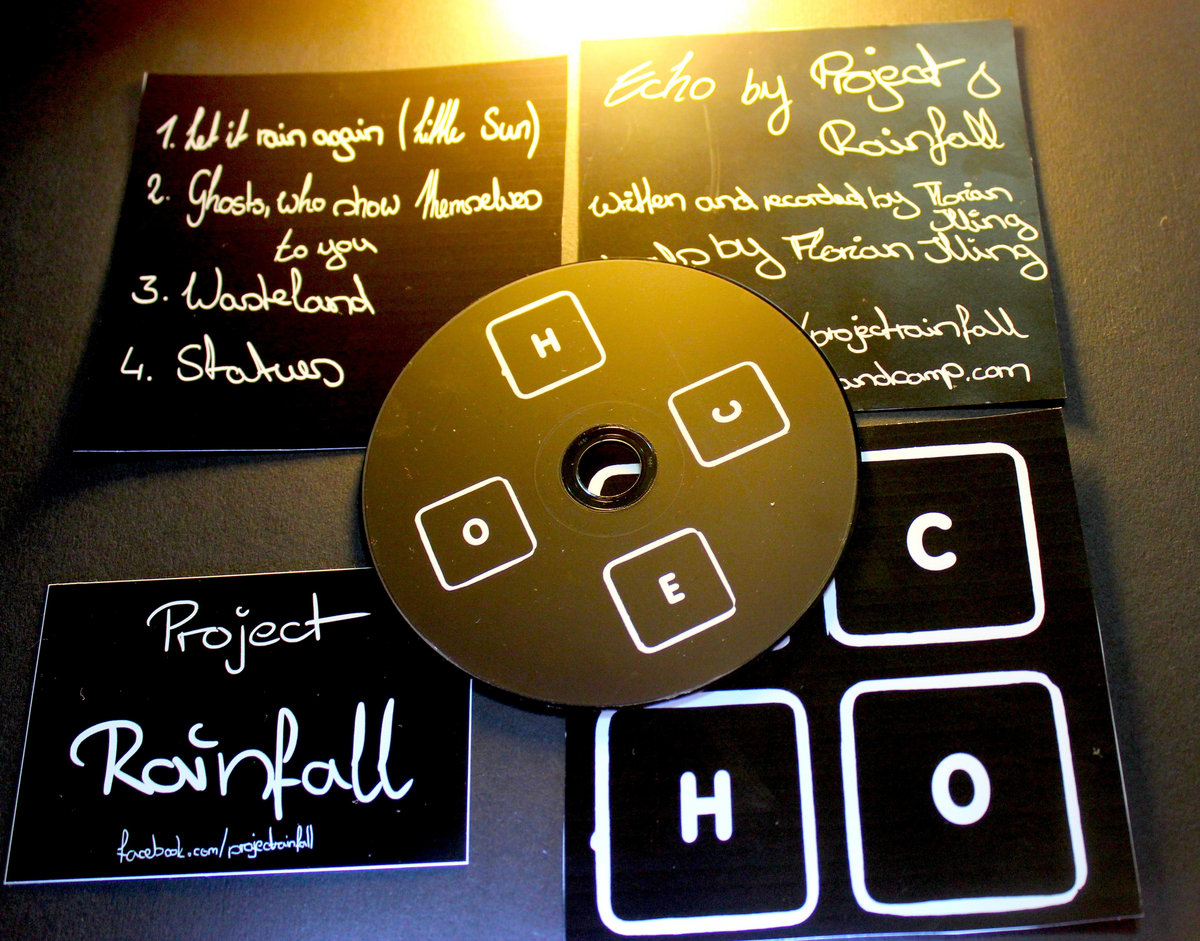 1. Let it rain again (Little Sun)
2. Ghosts, who show themselves
to you
3. Wasteland
4. Statues
Echo by Project
Rainfall
written and recorded by Florian
Illing
by Florian Illing
/projectrainfall
andcamp.com
H
C
O
E
C
H
O
Project
Rainfall
facebook.com/projectrainfall